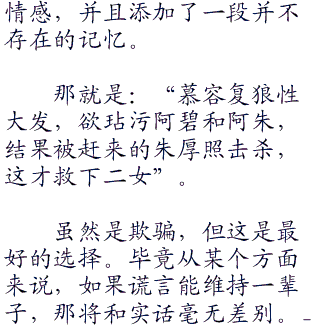 情感，并且添加了一段并不
存在的记忆。
那就是：“慕容复狼性
大发，欲玷污阿碧和阿朱，
结果被赶来的朱厚照击杀，
这才救下二女”。
虽然是欺骗，但这是最
好的选择。毕竟从某个方面
来说，如果谎言能维持一辈
子，那将和实话毫无差别。_